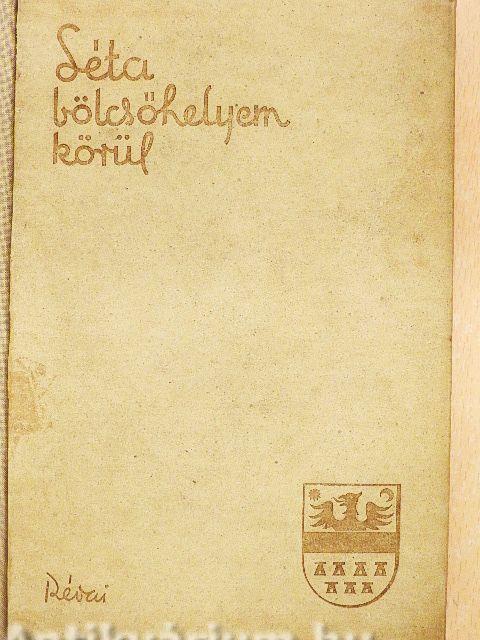 Séta
bölcsőhelyem
körül
Révai
Antikvárium.hu